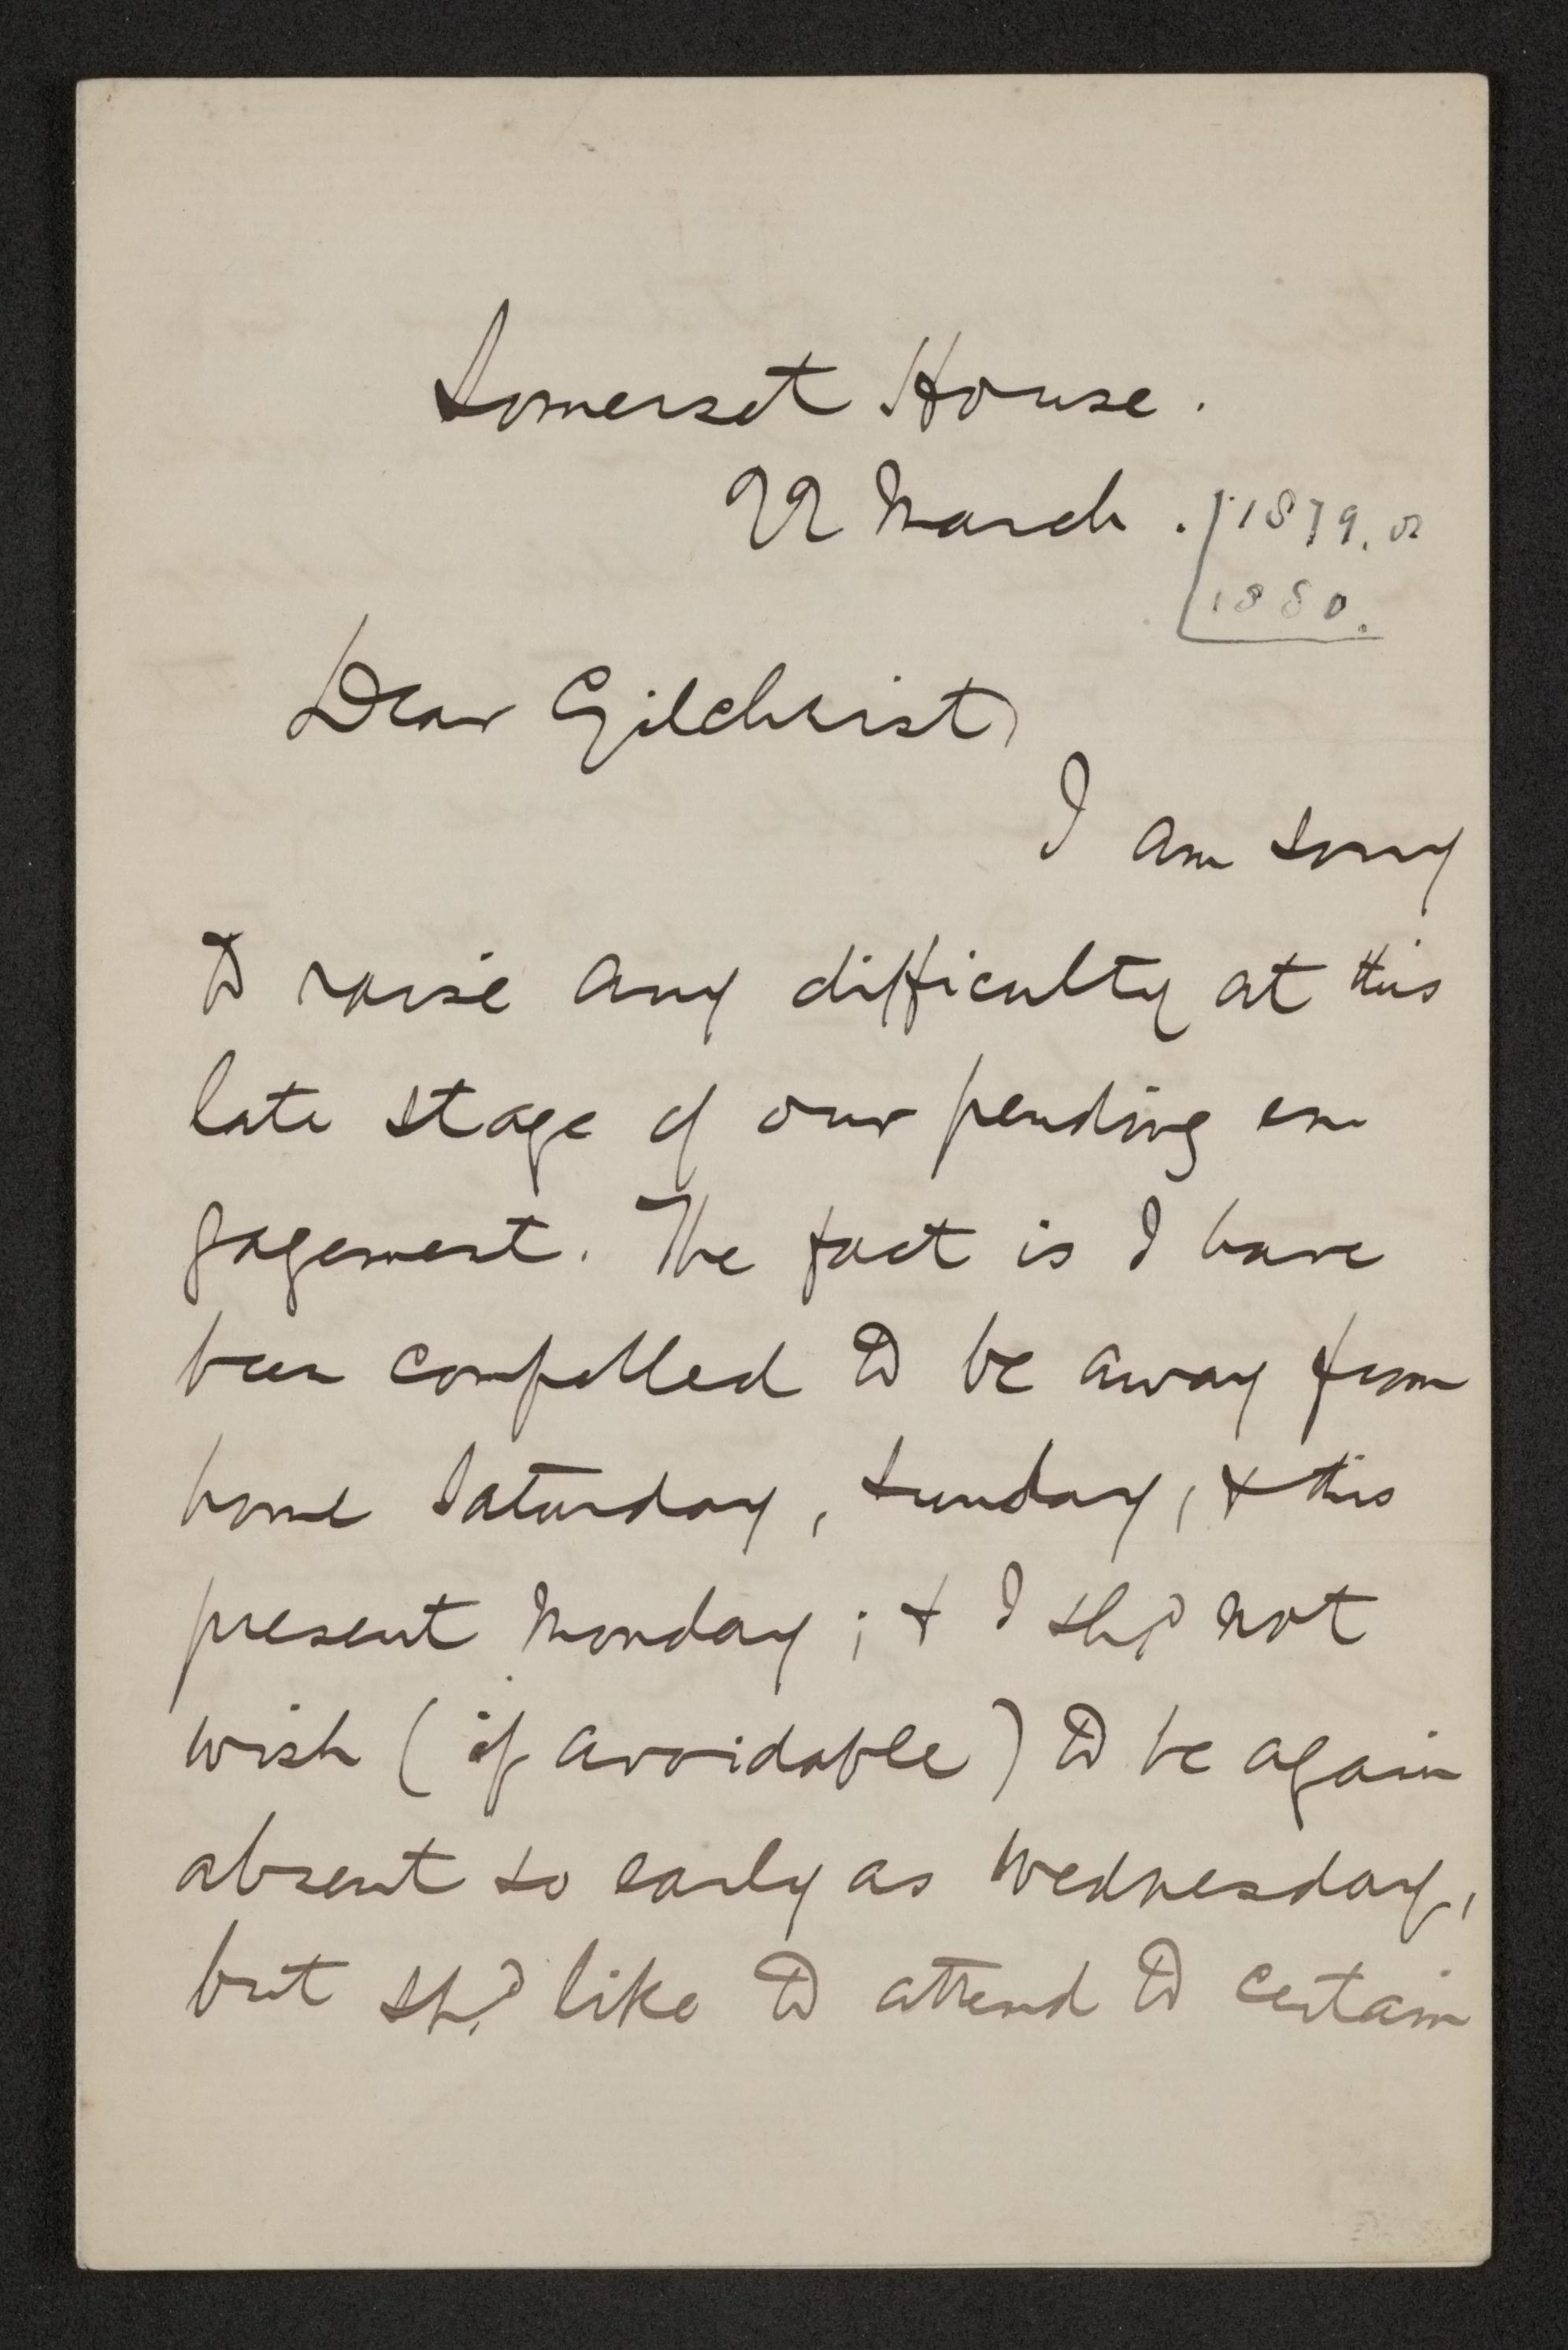 Somerset House.
22 March. [1879. or
1880.
Dear Gilchrist,
I am sorry
to raise any difficulty at this
late stage of our pending en
gagement. The fact is I have
been compelled to be away from
home Saturday, Sunday, & this
present Monday; & I shd not
wish (if avoidable) to be again
absent so early as Wednesday,
but shd like to attend to certain